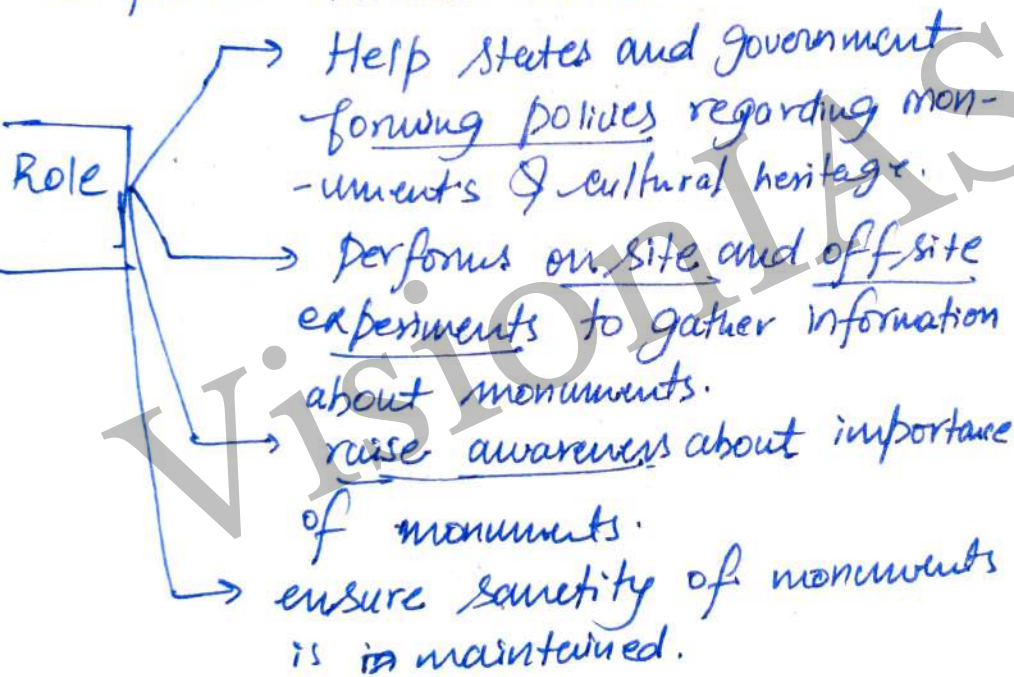 Help states and government
Role
forming policies regarding mon-
-uments & cultural heritage.
performs on site and off site
experiments to gather information
about monuments.
raise awareness about importance
of monuments.
ensure sanctity of monuments
is maintained.
VisionIAS